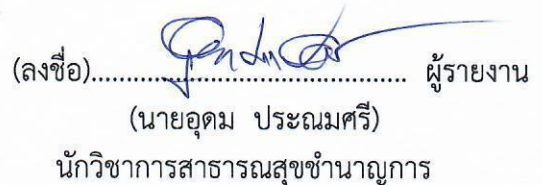 (ลงชื่อ)........................................ ผู้รายงาน
(นายอุดม ประณมศรี)
นักวิชาการสาธารณสุขชำนาญการ